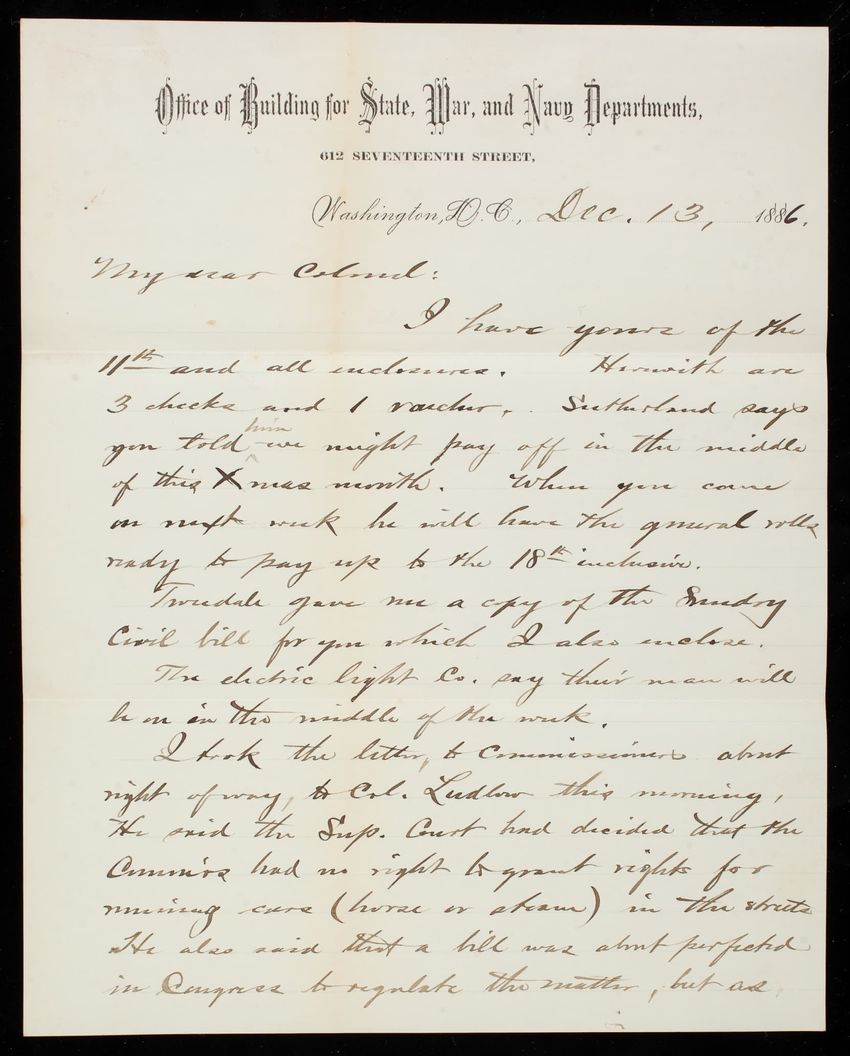 Office of Building for State, War, and Navy Departments,
612 SEVENTEENTH STREET,
Washington, D.C., Dec. 13, 1886.
My dear Colonel:
I have yours of the
11th and all enclosures. Herewith are
3 checks and 1 voucher. Sutherland says
him
you told we might pay off in the middle
of this Xmas month. When you come
on next week he will have the general rolls
ready to pay up to the 18th inclusive.
Tweedale gave me a copy of the Sundry
Civil bill for you which I also enclose.
The electric light Co. say their man will
be on in the middle of the week.
I took the letter, to Commissioners about
right of way, to Col. Ludlow this morning,
He said the Sup. Court had decided that the
Commrs had no right to grant rights for
running cars (horse or steam) in the streets
He also said that a bill was about perfected
in Congress to regulate the matter, but as